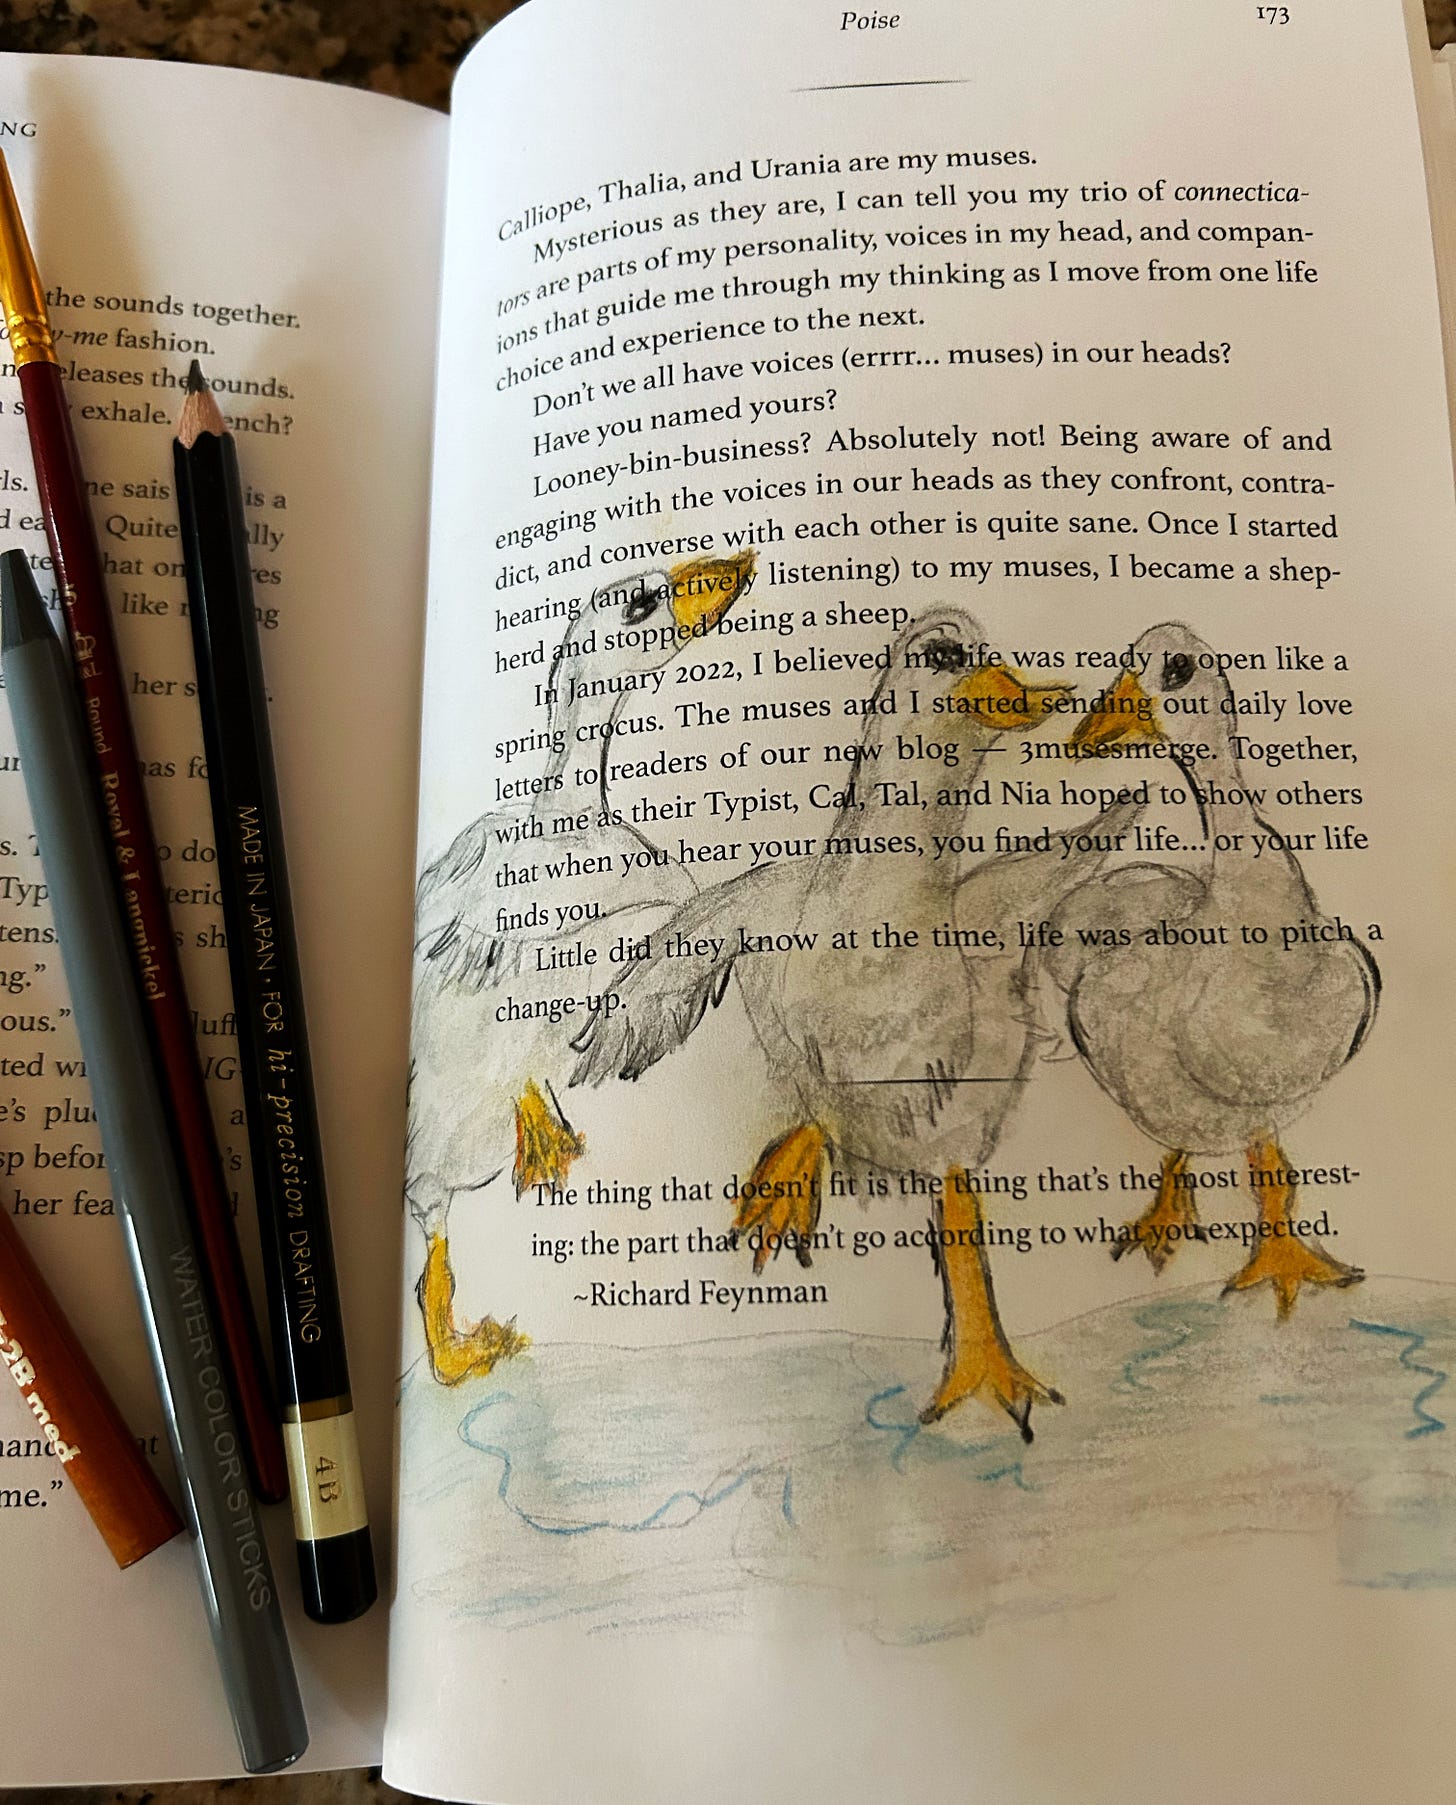 NG
the sounds together.
y-me fashion.
eleases the sounds.
exhale.
ne sais is a
Quite
hat on
like
her s
do
Typ
tens.
ng.”
ous.”
IG
ted wi
e’s plu a
sp befor
her fea
me.”
Royal & Langnickel
ROUND
MADE IN JAPAN • FOR hi-precision DRAFTING
4B
WATER COLOR STICKS
2B med
Poise
173
Calliope, Thalia, and Urania are my muses.
Mysterious as they are, I can tell you my trio of connectica-
tors are parts of my personality, voices in my head, and compan-
ions that guide me through my thinking as I move from one life
choice and experience to the next.
Don’t we all have voices (errrr... muses) in our heads?
Have you named yours?
Looney-bin-business? Absolutely not! Being aware of and
engaging with the voices in our heads as they confront, contra-
dict, and converse with each other is quite sane. Once I started
hearing (and actively listening) to my muses, I became a shep-
herd and stopped being a sheep.
In January 2022, I believed my life was ready to open like a
spring crocus. The muses and I started sending out daily love
letters to readers of our new blog — 3musesmerge. Together,
with me as their Typist, Cal, Tal, and Nia hoped to show others
that when you hear your muses, you find your life... or your life
finds you.
Little did they know at the time, life was about to pitch a
change-up.
The thing that doesn’t fit is the thing that’s the most interest-
ing: the part that doesn’t go according to what you expected.
~Richard Feynman